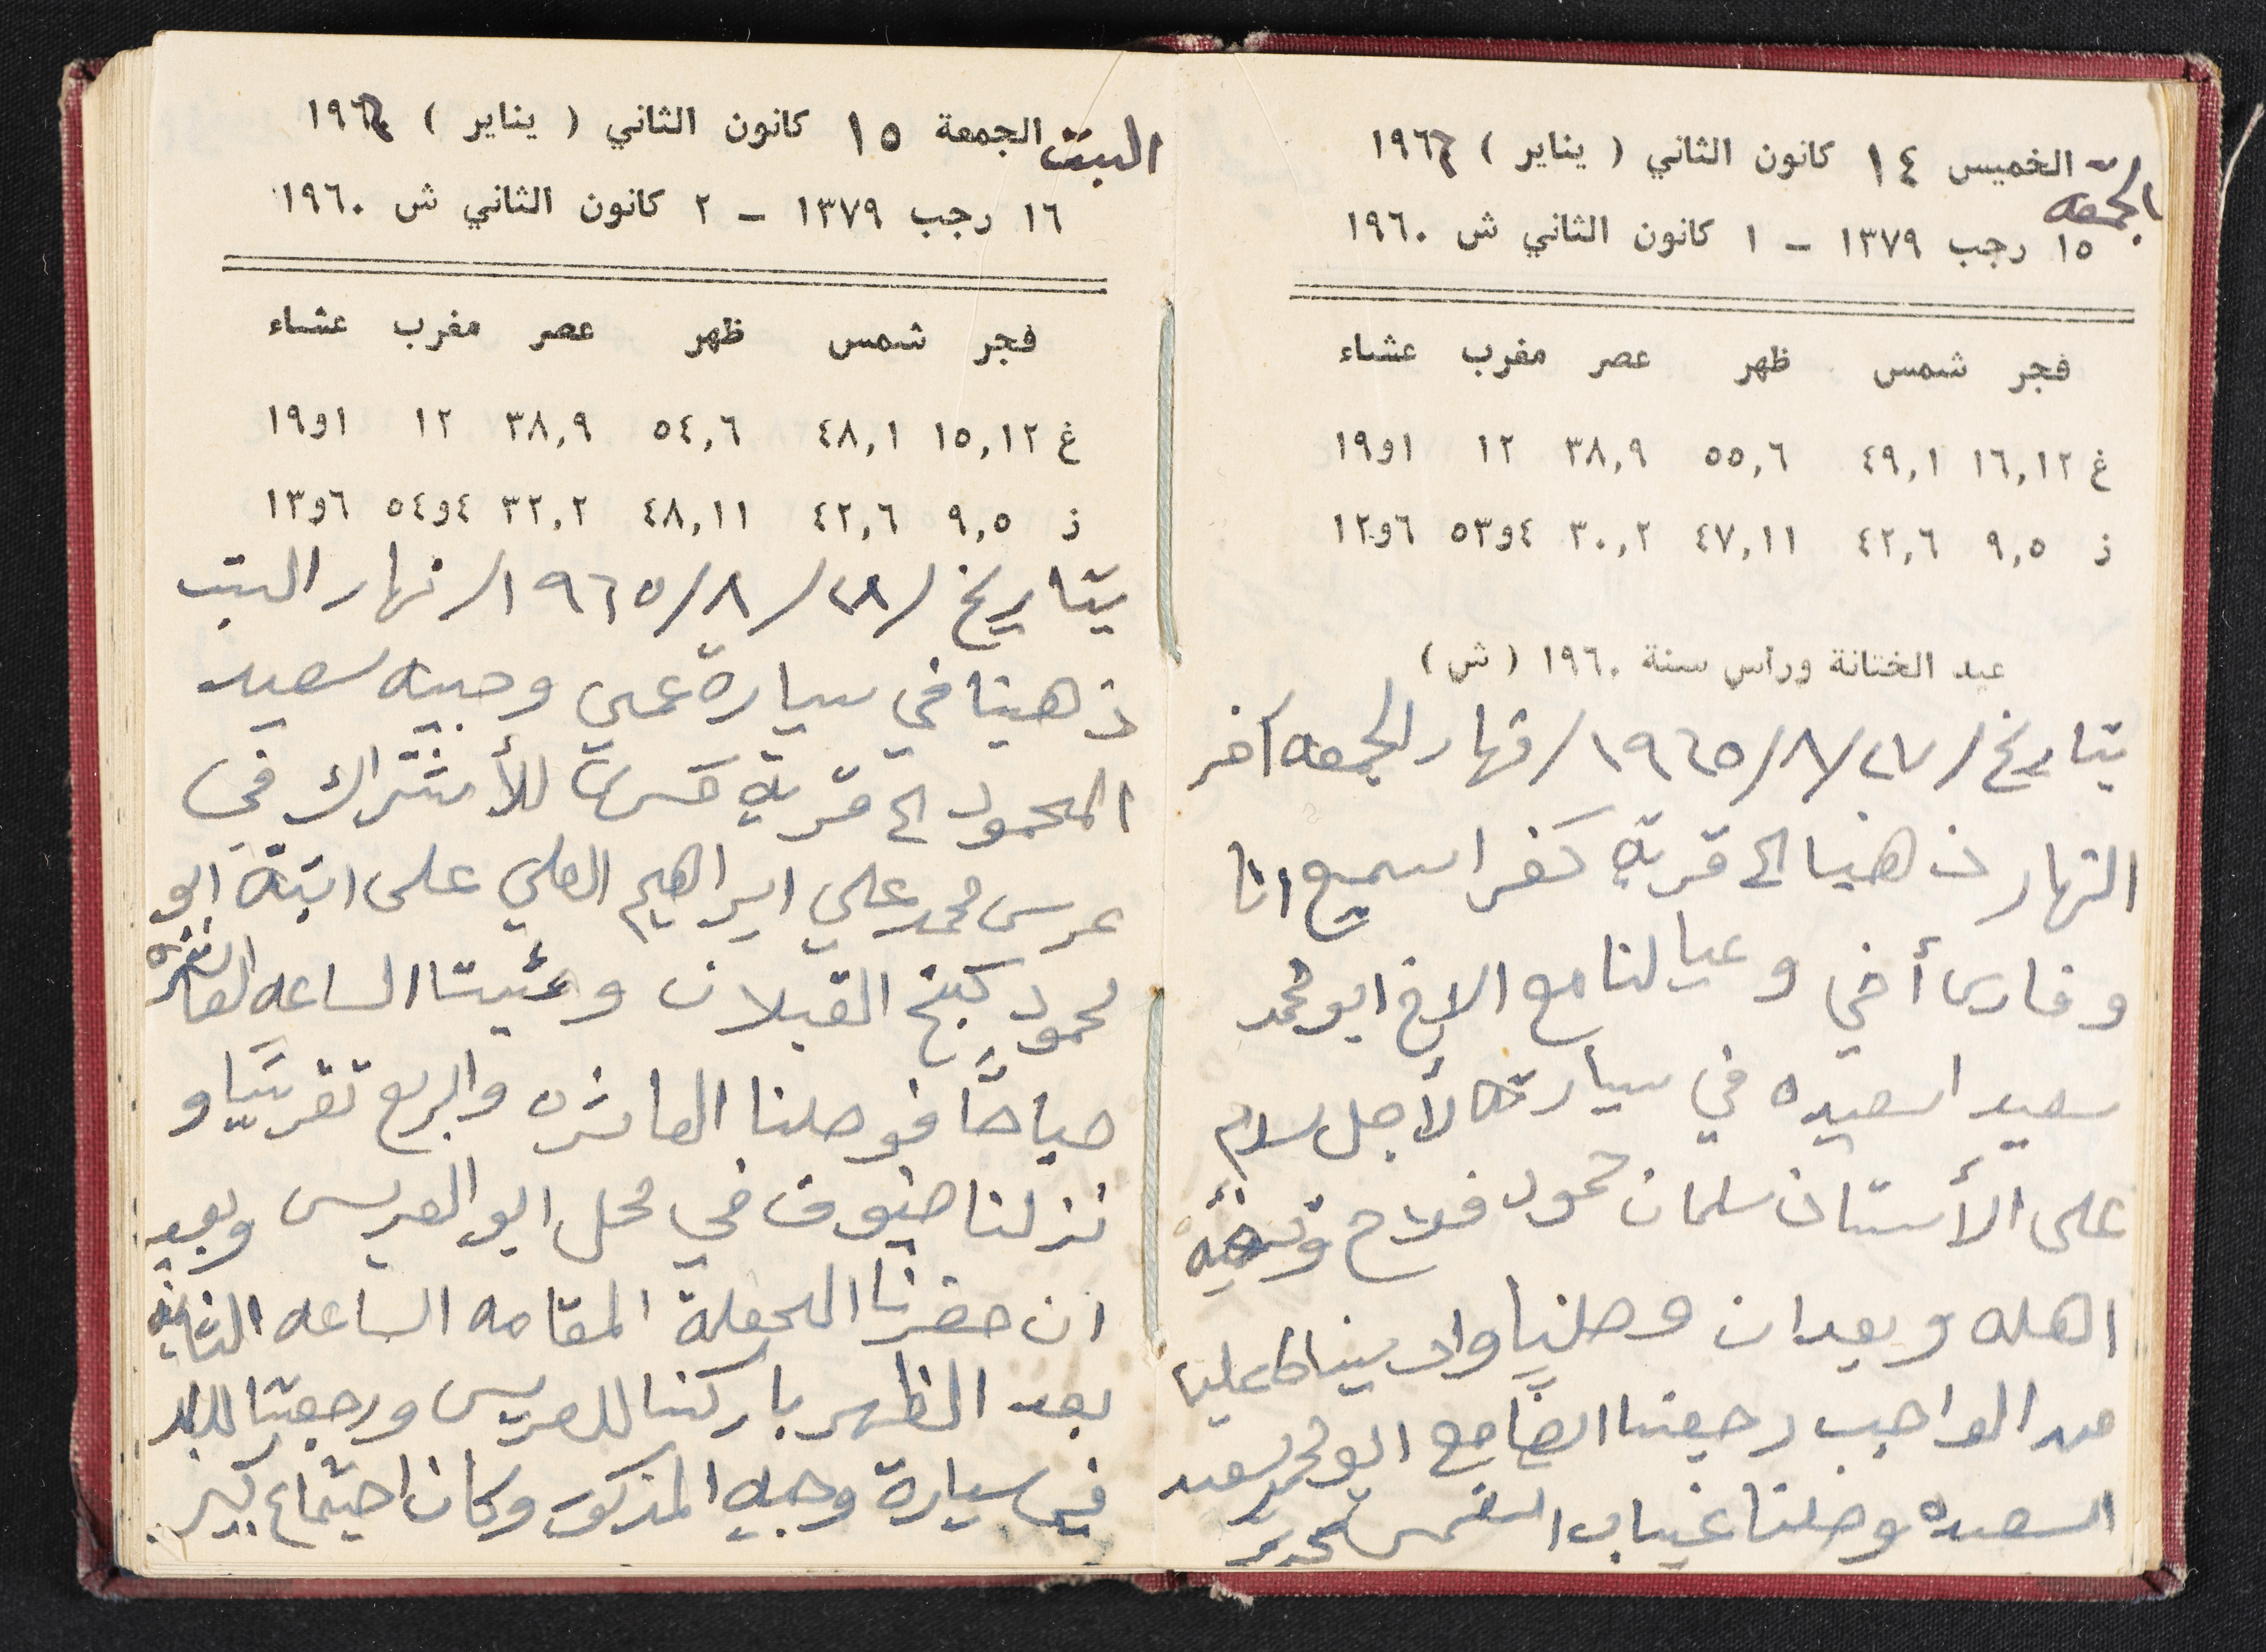 الجمعه
الخميس ١٤ كانون الثاني ( يناير ) ١٩٦٦
١٥ رجب ١٣٧٩ – ١ كانون الثاني ش ١٩٦٠
فجر شمس ظهر عصر مغرب عشاء
غ ١٦,١٢ ٤٩,١ ٥٥,٦ ٣٨,٩ ١٢ ١و١٩
ز ٩,٥ ٤٢,٦ ٤٧,١١ ٣٠,٢ ٤و٥٣ ٦و١٢
عيد الختانة وراس سنة ١٩٦٠ (ش)
بتاريخ /٢٧/٨/١٩٦٥/ نهار الجمعه آخر
النهار ذهبنا الى قرية كفر اسميع انا
وفارس أخي وعيالنا مع الاخ ابو محمد
سعيد اسعيده في سيارته لأجل سلام
على الأستاذ سلمان حمود فلاح
اهله وبعد ان وصلنا وادينا ما علينا
من الواجب رجعنا ايضًا مع ابو محمد سعيد
اسعيده وصلنا غياب الشمس
السبت
الجمعة ١٥ كانون الثاني ( يناير ) ١٩٦٦
١٦ رجب ١٣٧٩ – ٢ كانون الثاني ش ١٩٦٠
فجر شمس ظهر عصر مغرب عشاء
غ ١٥,١٢ ٤٨,١ ٥٤,٦ ٣٨,٩ ١٢ ١و١٩
ز ٩,٥ ٤٢,٦ ٤٨,١١ ٣٢,٢ ٤و٥٤ ٦و١٣
بتاريخ /٢٨/٨/١٩٦٥/ نهار السبت
ذهبنا في سيارة عمي وجيه سعيد
المحمود الى قرية للأشتراك في
عرس محمد علي ابراهيم العلي على ابنة ابو
محمود القبلان الساعه العاشره
صباحًا فوصلنا العاشره والربع تقريبًا و
نزلنا ضيوف في محل ابو العريس وبعد
ان حضرنا الحفلة المقامه الساعه الثانيه
بعد الظهر باركنا للعريس ورجعنا للبلد
في سيارة وجيه المذكور وكان اجتماع كبير.